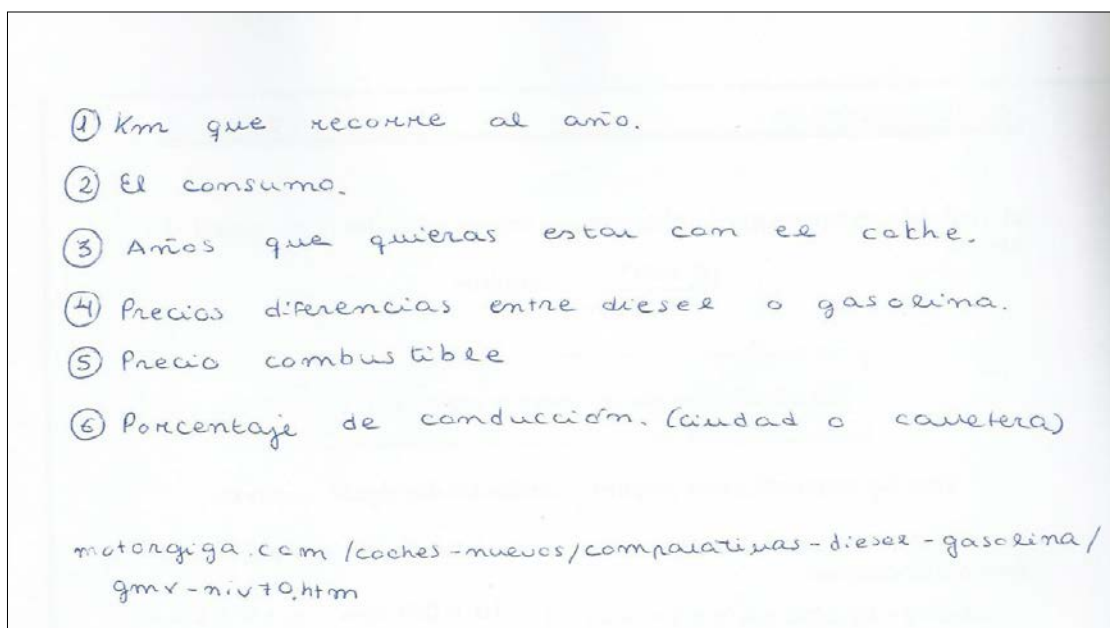 ① Km que recorre al año.
② El consumo.
③ Años que quieras estar con el coche.
④ Precios diferencias entre diesel o gasolina.
⑤ Precio combustible
⑥ Porcentaje de conducción. (ciudad o carretera)
motorgiga.com/coches-nuevos/comparativas-diesel-gasolina/
gmx-niv70.htm